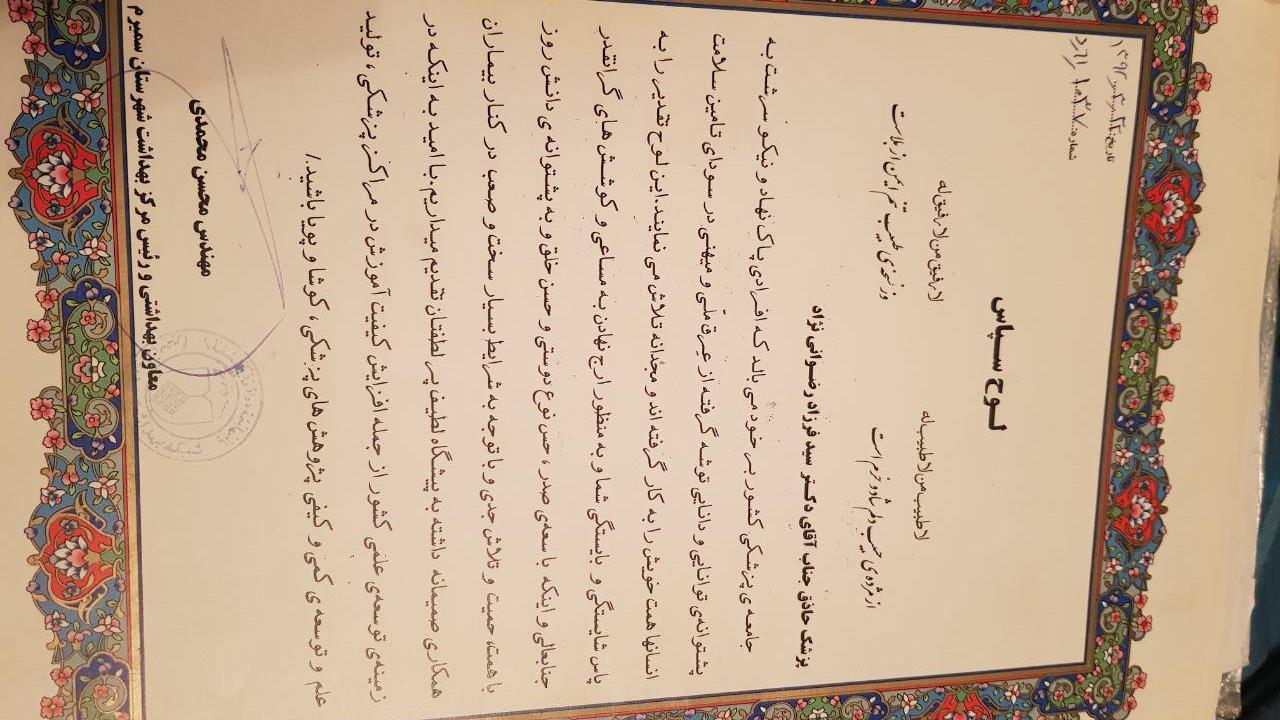 تاریخ:
شماره:
لوح سپاس
لا رفیق من لا رفیق له
لا طبیب من لا طبیب له
پزشک حاذق جناب آقای دکتر سید فرزاد رضوانی نژاد
جامعه ی پزشکی کشور بر خود می بالد که افرادی پاک نهاد و نیکو سرشت به
پشتوانه‌ی توانایی و دانایی توشه گرفته از عِرق ملّی و میهنی در سودای تامین سلامت
انسانها همت خویش را به کار گرفته اند و مجدّانه تلاش می نمایند. این لوح تقدیر را به
پاس شایستگی و بایستگی شما و به منظور ارج نهادن به مساعی و کوشش های گرانقدر
جنابعالی و اینکه با سعه‌ی صدر ، حس نوع دوستی و حسن خلق و به پشتوانه ی دانش روز
با همت، حمیت و تلاش جدی و با توجه به شرایط بسیار سخت و صعب در کنار بیماران
همکاری صمیمانه داشته به پیشگاه لطیف پر لطفتان تقدیم میداریم. با امید به اینکه در
زمینه‌ی توسعه‌ی علمی کشور از جمله افزایش کیفیت آموزش در مراکز پزشکی ، تولید
علم و توسعه ی کمی و کیفی پژوهش های پزشکی ، کوشا و پویا باشید./
مهندس محسن محمدی
معاون بهداشتی و رئیس مرکز بهداشت شهرستان سمیرم